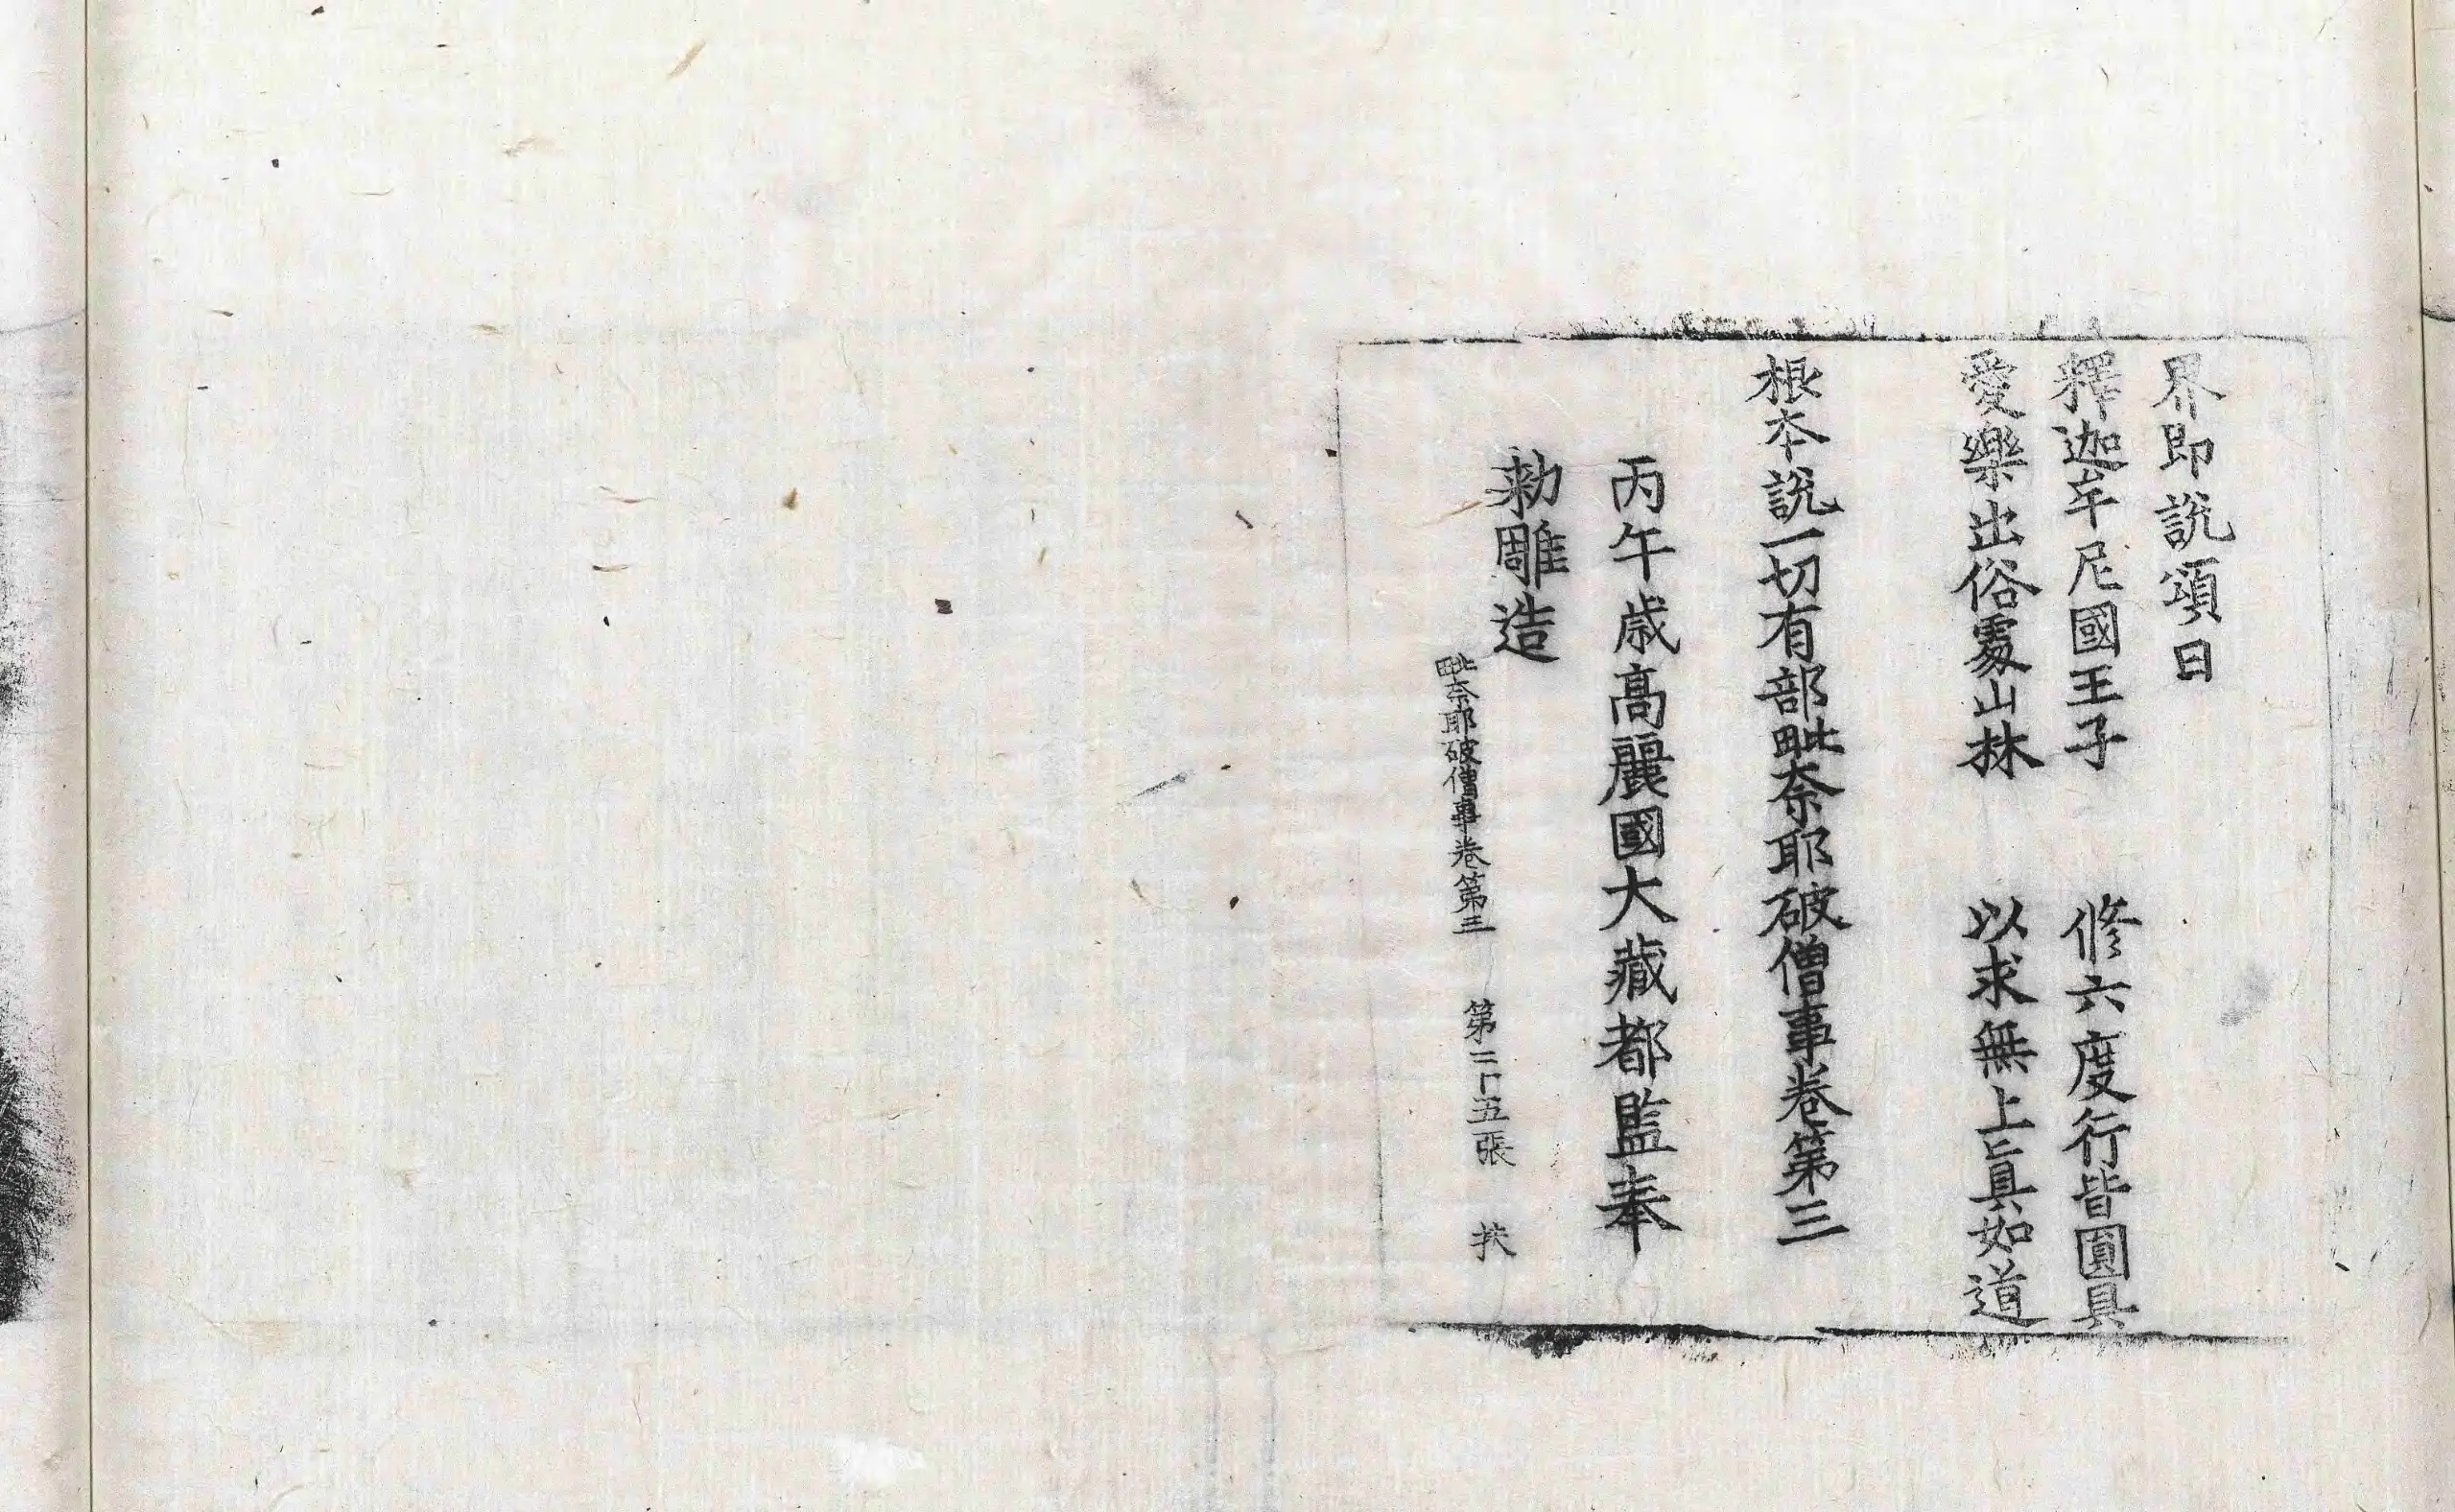 界即說頌曰
釋迦牟尼國王子 修六度行皆圓具
愛樂出俗處山林 以求無上眞如道
根本說一切有部毗奈耶破僧事卷第三
丙午歲高麗國大藏都監奉
勑雕造
毗奈耶破僧事卷第三 第二十五張 扶